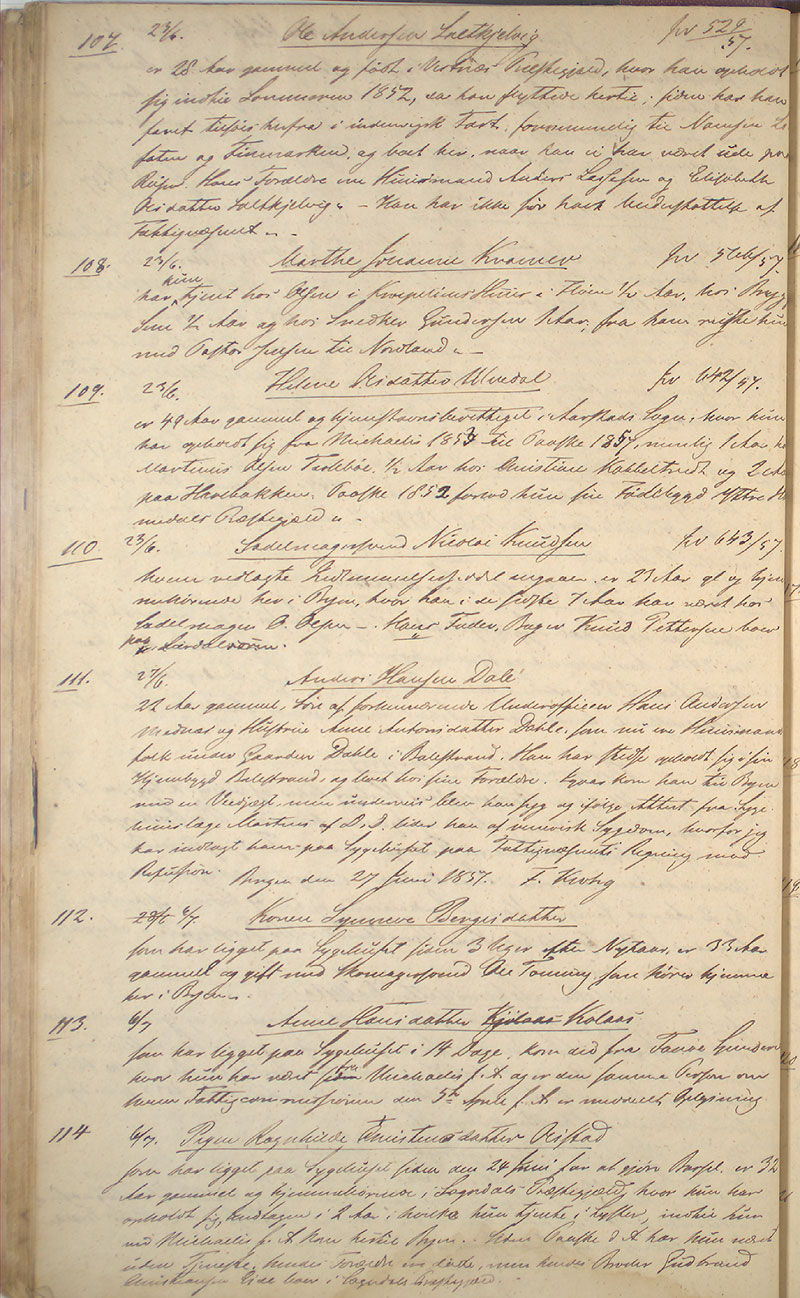 107. 23/6. Ole Andersen Saltkjelvig Jr 529/57.
er 28 Aar gammel og født i Præstegjæld, hvor han opholdt
sig indtil Sommeren 1852, da han flyttede hertil; siden har han
faret tilsøes herfra i indenrigsk Fart, fornemmelig til Namsen Lo
foten og Finmarken, og boet her, naar han ei har været ude paa
Reiser. Hans Forældre ere Huusmand Anders Lassesen og Elisabeth
Olsdatter Saltkjelvig. - Han har ikke før havt Understøttelse af
Fattigvæsenet. -
108. 23/6. Marthe Johanne Kramer Jr 57.
har hun tjent hos Olsen i Huus i 1/2 Aar, hos
1/2 Aar og hos Snedker Gundersen 1 Aar, fra ham reiste hun
med Pastor Jensen til Nordland. -
109. 23/6. Helene Olsdatter Ulvedal Jr 642/57.
er 49 Aar gammel og hjemstavnsberettiget i Aarstads Sogn, hvor hun
har opholdt sig fra Michaelis 1853 til Paaske 1857, nemlig 1 Aar hos
Martinus Olsen 1/2 Aar hos Christian og 2 Aar
paa Paaske 1852 forlod hun sin Fødebygd Yttre
Præstegjæld. -
110. 23/6. Sadelmagersvend Nicolai Knudsen Jr 643/57.
hvem vedlagte angaaer, er 23 Aar gl og hjem
mehørende her i Byen, hvor han i de sidste 7 Aar har været hos
Sadelmager O. Olsen. - Hans Fader, Bager Knud Pettersen boer
paa Lærdalsøren.
111. 27/6. Anders Hansen Dale
22 Aar gammel, Søn af forhenværende Underofficeer Hans Andersen
og Hustrue Anne Antonsdatter Dahle, som nu ere Huusmands
folk under Gaarden Dahle i Balestrand. Han har stedse opholdt sig i sin
Hjembygd Balestrand, og levet hos sine Forældre. kom han til Byen
med en Vedjægt, men underveis blev han syg og ifølge Attest fra Syge
huuslæge Martens af D. D. lider han af venerisk Sygdom, hvorfor jeg
har indlagt ham paa Sygehuset paa Fattigvæsenets Regning mod
Refusion. Bergen den 27 Juni 1857. F. Krohg
112. 28/6 6/7. Konen Synneve Bergesdatter
som har ligget paa Sygehuset siden 3 Uger efter Nytaar, er 33 Aar
gammel og gift med Skomagersvend Ole Tonning, som hører hjemme
her i Byen. -
113. 6/7 Anne Hansdatter Kjolaas Kolaas
som har ligget paa Sygehuset i 14 Dage, kom did fra
hvor hun har været siden Michaelis f. A. og er den samme Person om
hvem Fattigcommissionen den 5te April f. A. er meddeelt Oplysning
114 6/7. Pigen Ragnhilde Christensdatter Olstad
som har ligget paa Sygehuset siden den 24 Juni for at gjøre Barsel. er 32
Aar gammel og hjemmehørende i Sogndals Præstegjæld, hvor hun har
opholdt sig, undtagen i 2 Aar i hvilke hun tjente i Lyster, indtil hun
ved Michaelis f. A. kom hertil Byen. Siden Paaske d. A. har hun været
uden Tjeneste. Hendes Forældre ere døde, men hendes Broder Gudbrand
Christensen Eide boer i Sogndals Præstegjæld.